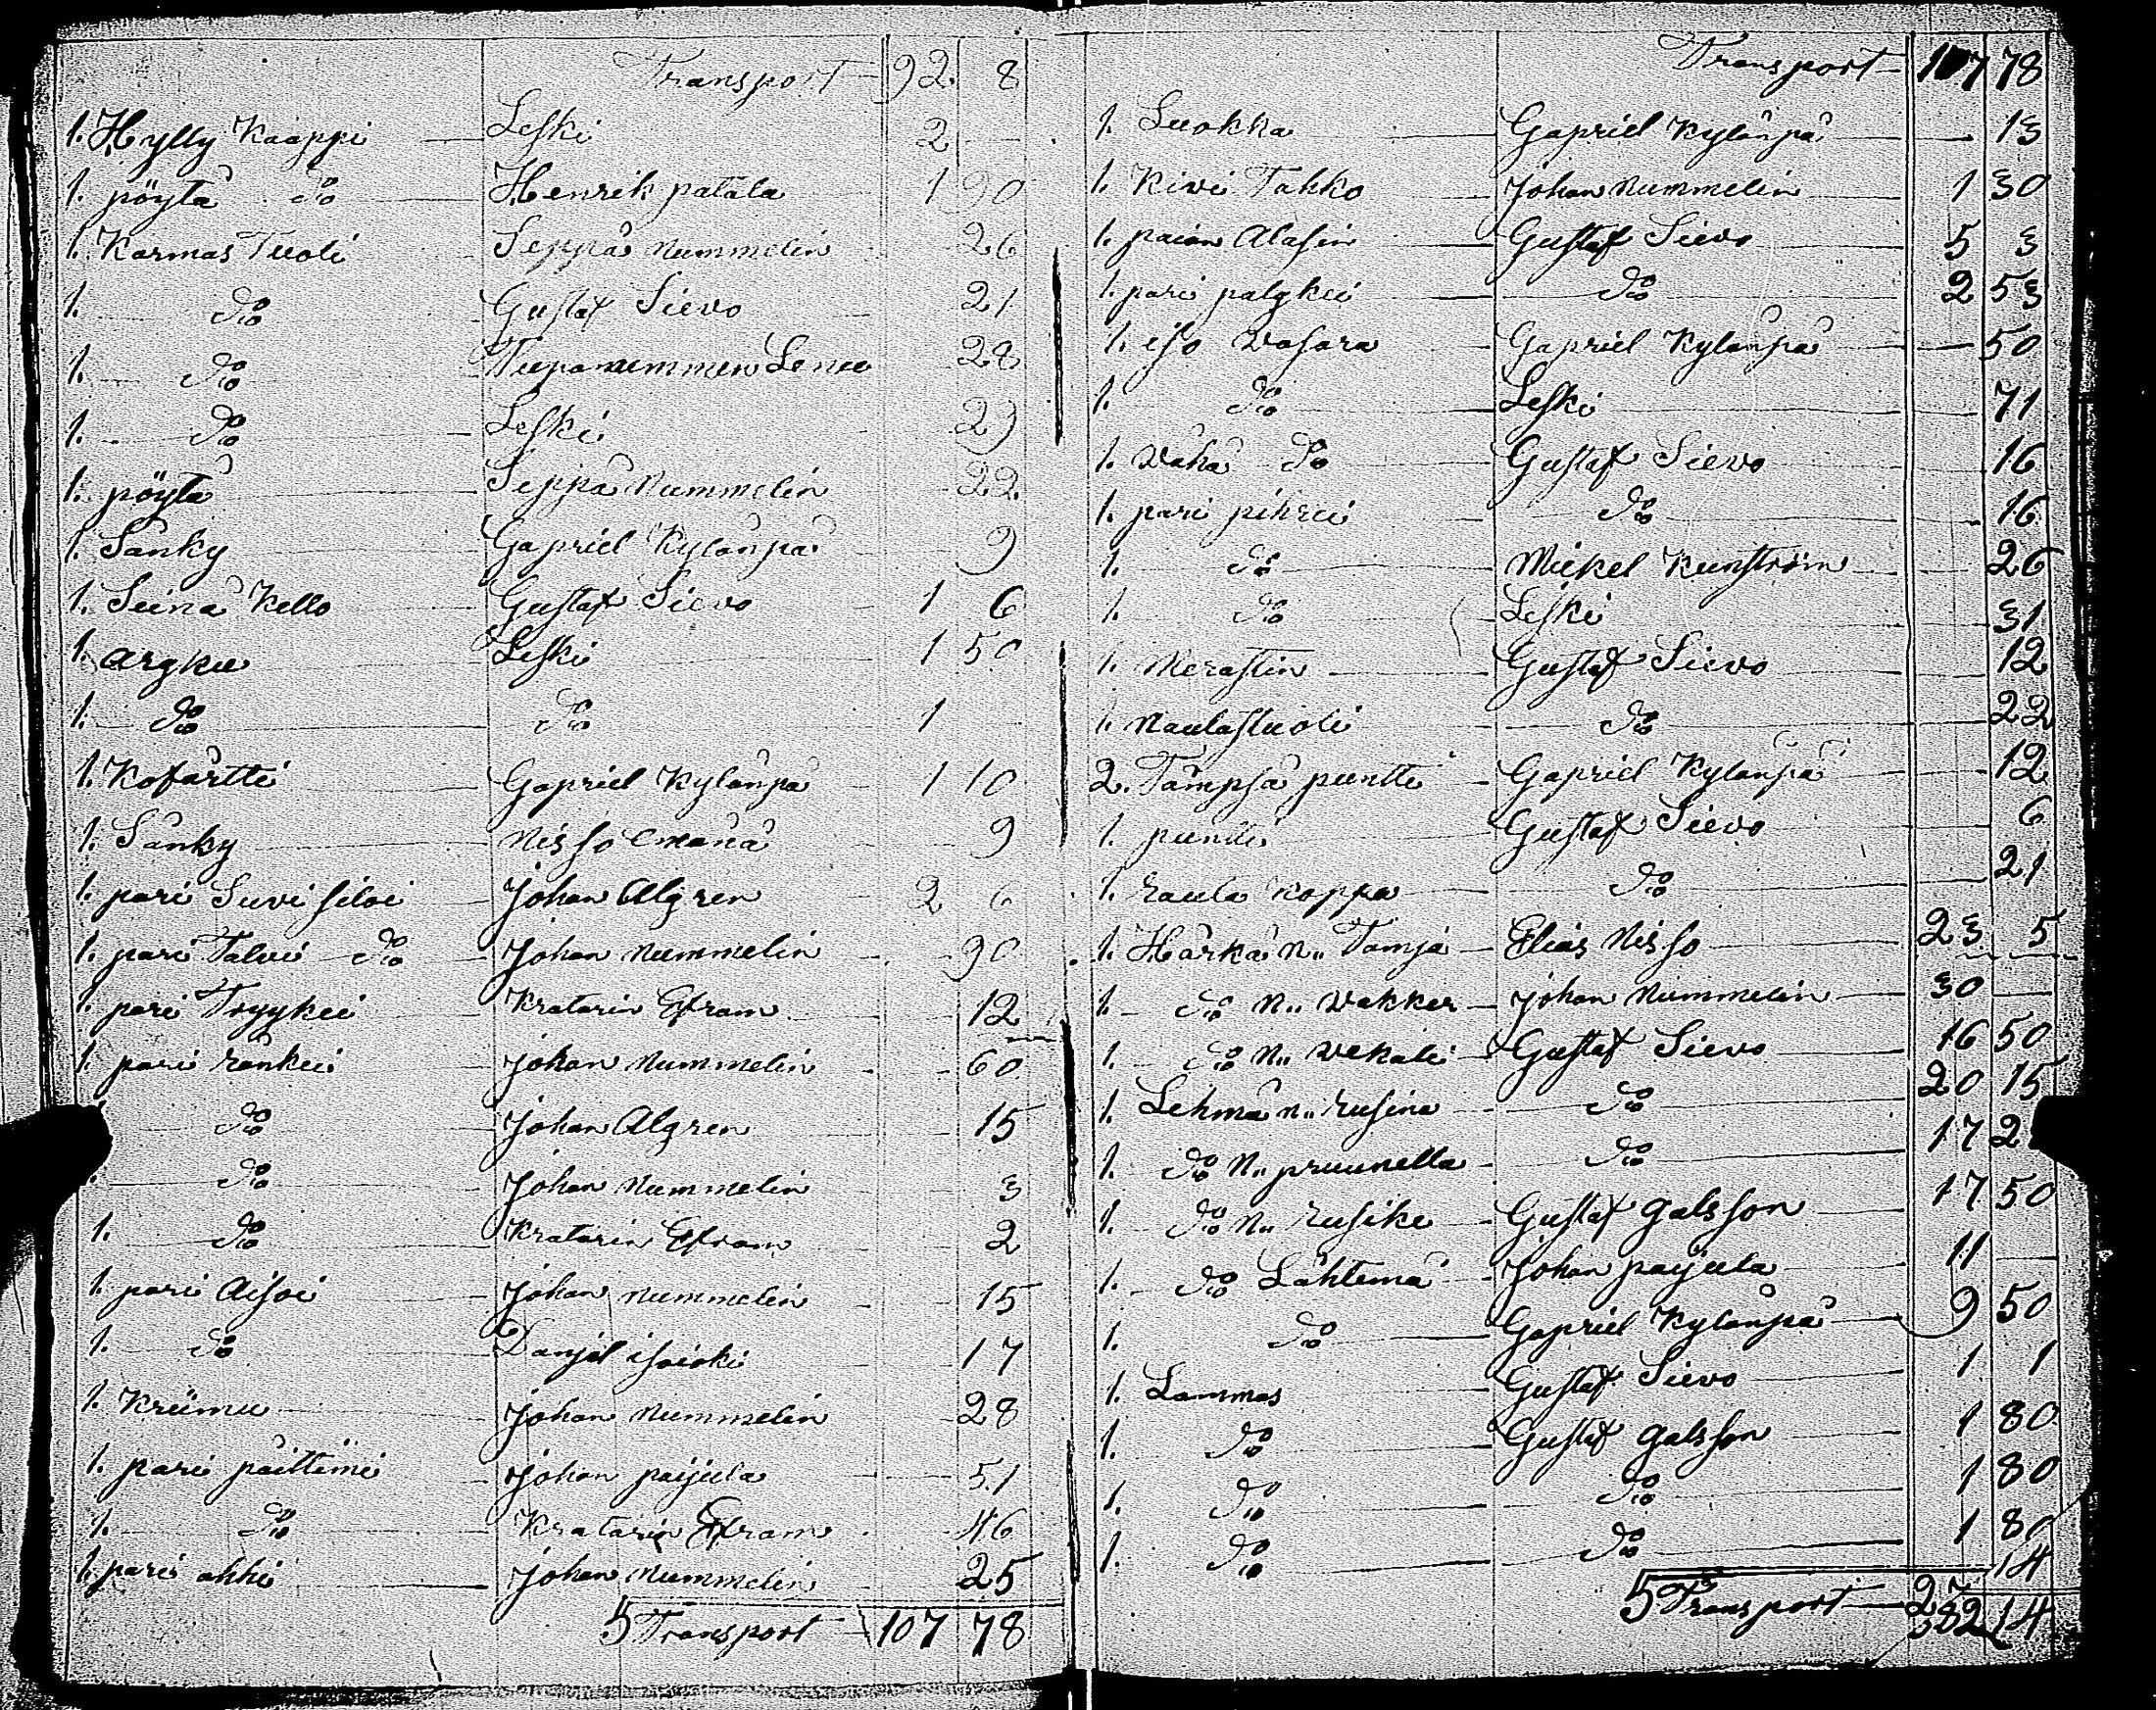 Transport 92 8
1. Hylly Kaappi Leski 2
1. pöytä do Henrik patala 1 90
1. Karmas Tuoli Seppä Nummelin 26
1. do Gustaf Sievo 21
1. do 28
1. do Leski 29
1. pöytä Seppä Nummelin 22
1. Sänky Gapriel Kylänpä 9
1. Seinä Kello Gustaf Sievo 1 6
1. argku Leski 1 50
1. do do 1
1. Kofärtti Gapriel Kylänpä 1 10
1. Sänky Nisso emänä 9
1. pari Suvi siloi Johan Algren 2 6
1. pari Talvi do Johan Nummelin 90
1. pari Tryykei Kratarin Efram 12
1. pari ränkei Johan Nummelin 60
do Johan Algren 15
do Johan Nummelin 3
1. do Kratarin Efram 2
1. pari Aisoi Johan Nummelin 15
1. do Danjel isoioki 17
1. Kriimu Johan Nummelin 28
1. pari päittimi Johan paijula 51
1. do Kratarin Efram 46
1. pari ahki Johan Nummelin 25
5 Transport 107 78
Transport 107 78
1. Luokka Gapriel Kylänpä 13
1. Kivi Tahko Johan Nummelin 1 30
1. paian Alasin Gustaf Sievo 5 3
1. pari palgkei do 2 53
1. iso Vasara Gapriel Kylänpä 50
1. do Leski 71
1. Vähä do Gustaf Sievo 16
1. pari pihtei do 16
1. do Mickel Kunström 26
1. do Leski 31
1. Merastin Gustaf Sievo 12
1. Naulastuoli do 22
2. Tämpsä puntti Gapriel Kylänpä 12
1. puntti Gustaf Sievo 6
1. Raula Koppa do 21
1. Härkä N.. Tamja Elias Nisso 23 5
1. do N.. Vakker Johan Nummelin 30
1. do N.. Vekali Gustaf Sievo 16 50
1. Lehmä N.. Rusina do 20 15
1. do N.. pruunella do 17 2
1. do N.. Rusike Gustaf galsson 17 50
1. do Lähtemä Johan paijula 11
1. do Gapriel Kylänpä 9 50
1. Lammas Gustaf Sievo 1 1
1. do Gustaf galsson 1 80
1. do do 1 80
1. do do 1 80
14
5 Transport 14